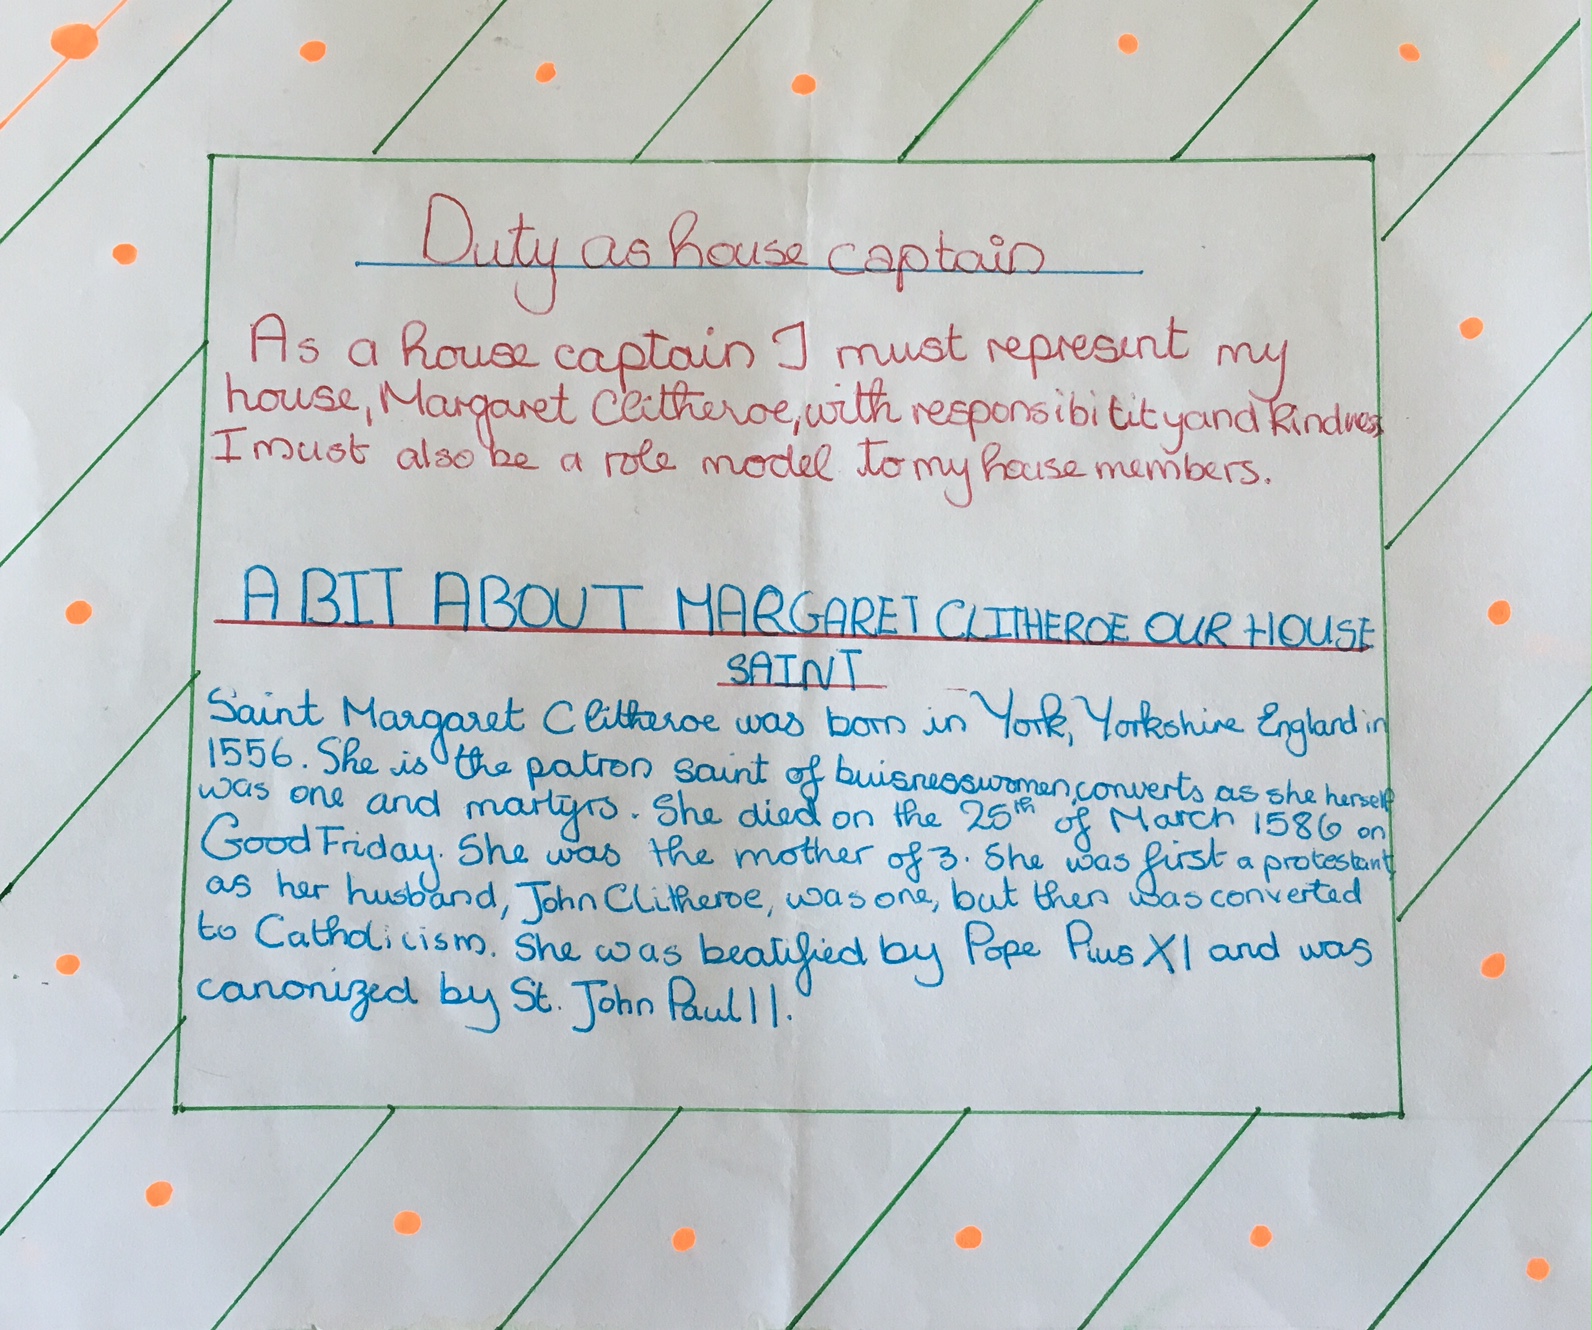 Duty as house captain
As a house captain I must represent my
house, Margaret Clitheroe, with responsibility and kindness
I must also be a role model to my house members.
A BIT ABOUT MARGARET CLITHEROE OUR HOUSE
SAINT
Saint Margaret Clitheroe was born in York, Yorkshire England in
1556. She is the patron saint of buisnesswomen, converts as she herself
was one and martyrs. She died on the 25th of March 1586 on
Good Friday. She was the mother of 3. She was first a protestant
as her husband, John Clitheroe, was one, but then was converted
to Catholicism. She was beatified by Pope Pius XI and was
canonized by St. John Paul II.